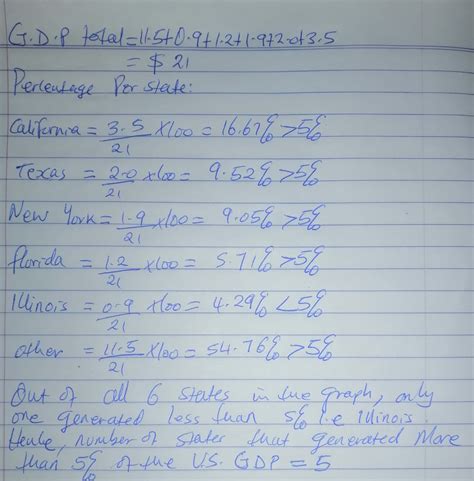 G.D.P total=11.5+0.9+1.2+1.9+2.0+3.5
= $ 21
Percentage Per state:
California = 3.5/21 ×100 = 16.67% >5%
Texas = 2.0/21 ×100 = 9.52% >5%
New York = 1.9/21 ×100 = 9.05% >5%
florida = 1.2/21 ×100 = 5.71% >5%
Illinois = 0.9/21 ×100 = 4.29% <5%
other = 11.5/21 ×100 = 54.76% >5%
Out of all 6 states in the graph, only
one generated less than 5% i.e Illinois
Hence, number of states that generated More
than 5% of the U.S. GDP = 5